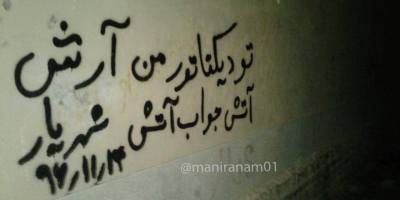 تو دیکتاتور من آرش
آتش جواب آتش شهریار
۹۶/۱۱/۱۳
@maniranam01